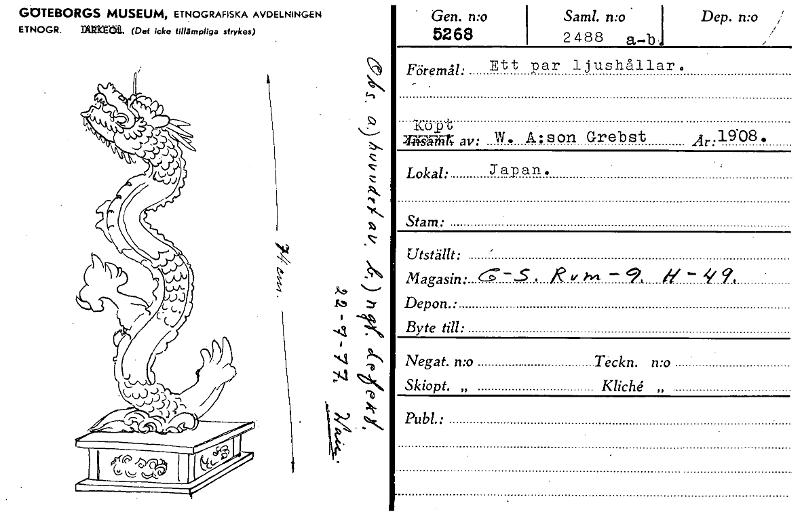 GÖTEBORGS MUSEUM, ETNOGRAFISKA AVDELNINGEN
ETNOGR. ARKEOL. (Det icke tillämpliga strykes)
74 cm.
Obs. a.) huvudet av. b.) ngt. defekt.
22-9-77.
Gen. n:o
5268
Saml. n:o
2488 a-b.
Dep. n:o
Föremål: Ett par ljushållar.
Köpt
Insaml. av: W. A:son Grebst År: 1908.
Lokal: Japan.
Stam:
Utställt:
Magasin: G-S. Rum-9. H-49.
Depon.:
Byte till:
Negat. n:o Teckn. n:o
Skiopt. „ Kliché „
Publ.: